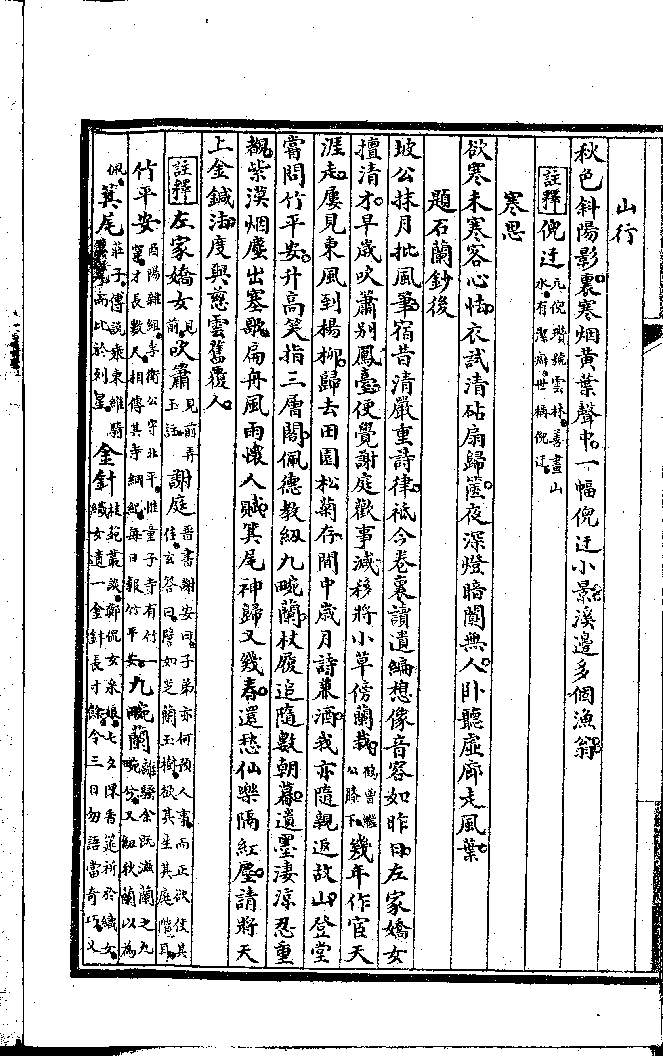 山行
秋色斜陽影裏寒烟黃葉聲中一幅倪迂小景溪邊多個漁翁
註釋 倪迂 元倪瓚號雲林善畫山水有潔癖世稱倪迂
寒思
欲寒未寒客心怯衣試清砧扇歸篋夜深燈暗闃無人卧聽虛廊走風葉
題石蘭鈔後
坡公抹月批風筆宿昔清嚴重詩律祗今卷裏讀遺編想像音容如昨日左家嬌女
擅清才早歲吹簫別鳳臺便覺謝庭歡事減移將小草傍蘭栽 鶴曾繼公膝下 幾年作宦天
涯走屢見東風到楊柳歸去田園松菊存閒中歲月詩兼酒我亦隨親返故山登堂
嘗問竹平安升高笑指三層閣佩德教紉九畹蘭杖履追隨數朝暮遺墨淒涼忍重
覩紫漠烟塵出塞歌扁舟風雨懷人賦箕尾神歸又幾春還愁仙樂隔紅塵請將天
上金鍼法度與慈雲舊覆人
註釋 左家嬌女 見前 吹簫 見前弄玉註 謝庭 晉書謝安曰子弟亦何預人事而正欲使其佳玄答曰譬如芝蘭玉樹欲其生其庭階耳
竹平安 酉陽雜俎李衛公守北平惟童子寺有竹一窠才長數尺相傳其寺綱紀每日報竹平安 九畹蘭 離騷余既滋蘭之九畹兮又紉秋蘭以為
佩 箕尾 莊子傅說乘東維騎箕尾而比於列星 金針 桂苑叢談鄭侃女采娘七夕陳香筵祈於織女織女遺一金針長寸餘令三日勿語當奇巧又